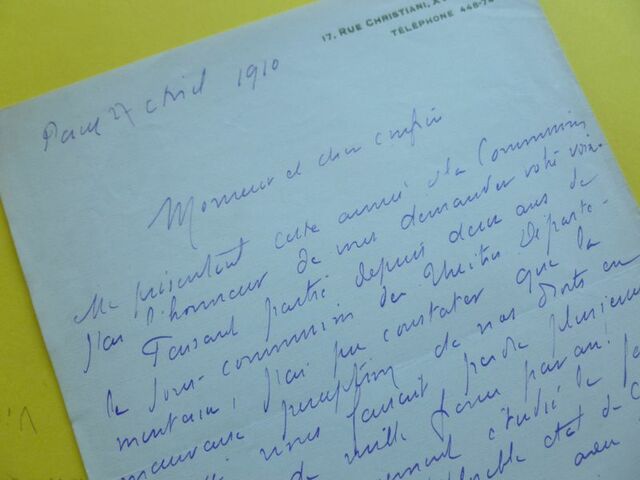 17, RUE CHRISTIANI, X
TÉLÉPHONE 448-74
Paris 27 Avril 1910
Monsieur et cher confrère
Me présentant cette année à la Commission
j'ai l'honneur de vous demander votre voix.
Faisant partie depuis deux ans de
la sous-commission des Théâtres Départe-
mentaux, j'ai pu constater que la
mauvaise perception de nos droits en
nous faisait perdre plusieurs
de mille francs par an!
étudié la
état de
avec